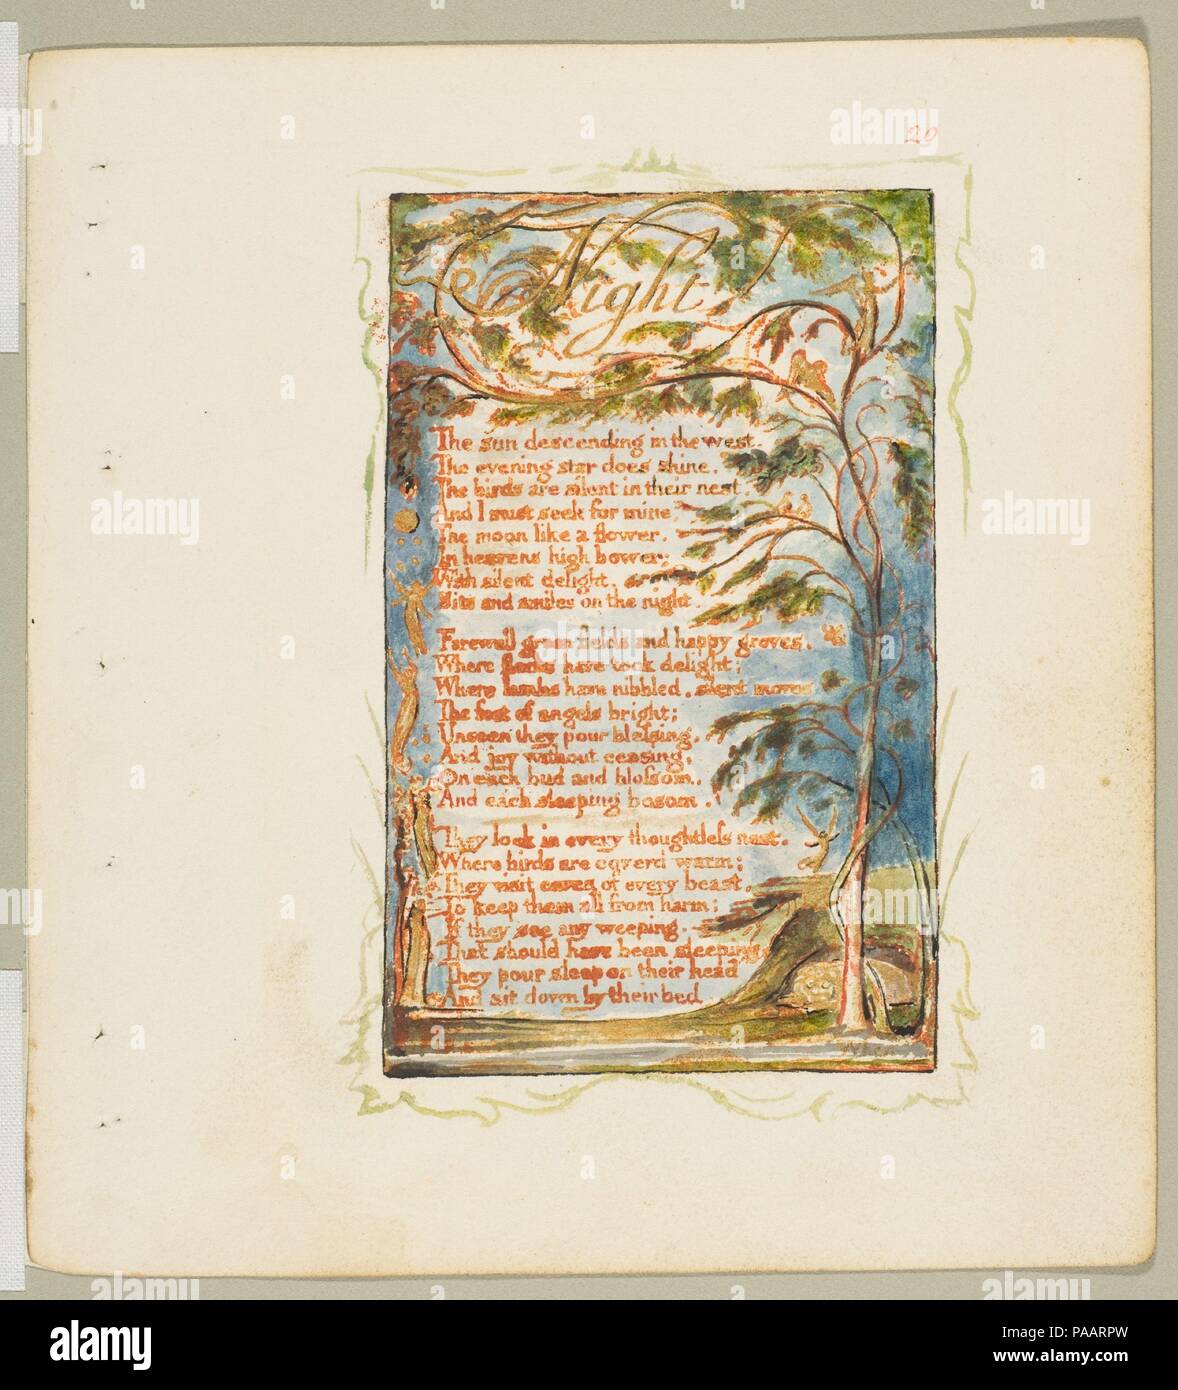 20
Night
The sun descending in the west.
The evening star does shine.
The birds are silent in their nest.
And I must seek for mine,
The moon like a flower,
In heavens high bower;
With silent delight,
Sits and smiles on the night.
Farewell green fields and happy groves,
Where flocks have took delight;
Where lambs have nibbled, silent moves
The feet of angels bright;
Unseen they pour blessing,
And joy without ceasing,
On each bud and blossom,
And each sleeping bosom.
They look in every thoughtless nest,
Where birds are coverd warm;
They visit caves of every beast,
To keep them all from harm;
If they see any weeping,
That should have been sleeping
They pour sleep on their head
And sit down by their bed
When
alamy
Image ID: PAARPW
www.alamy.com